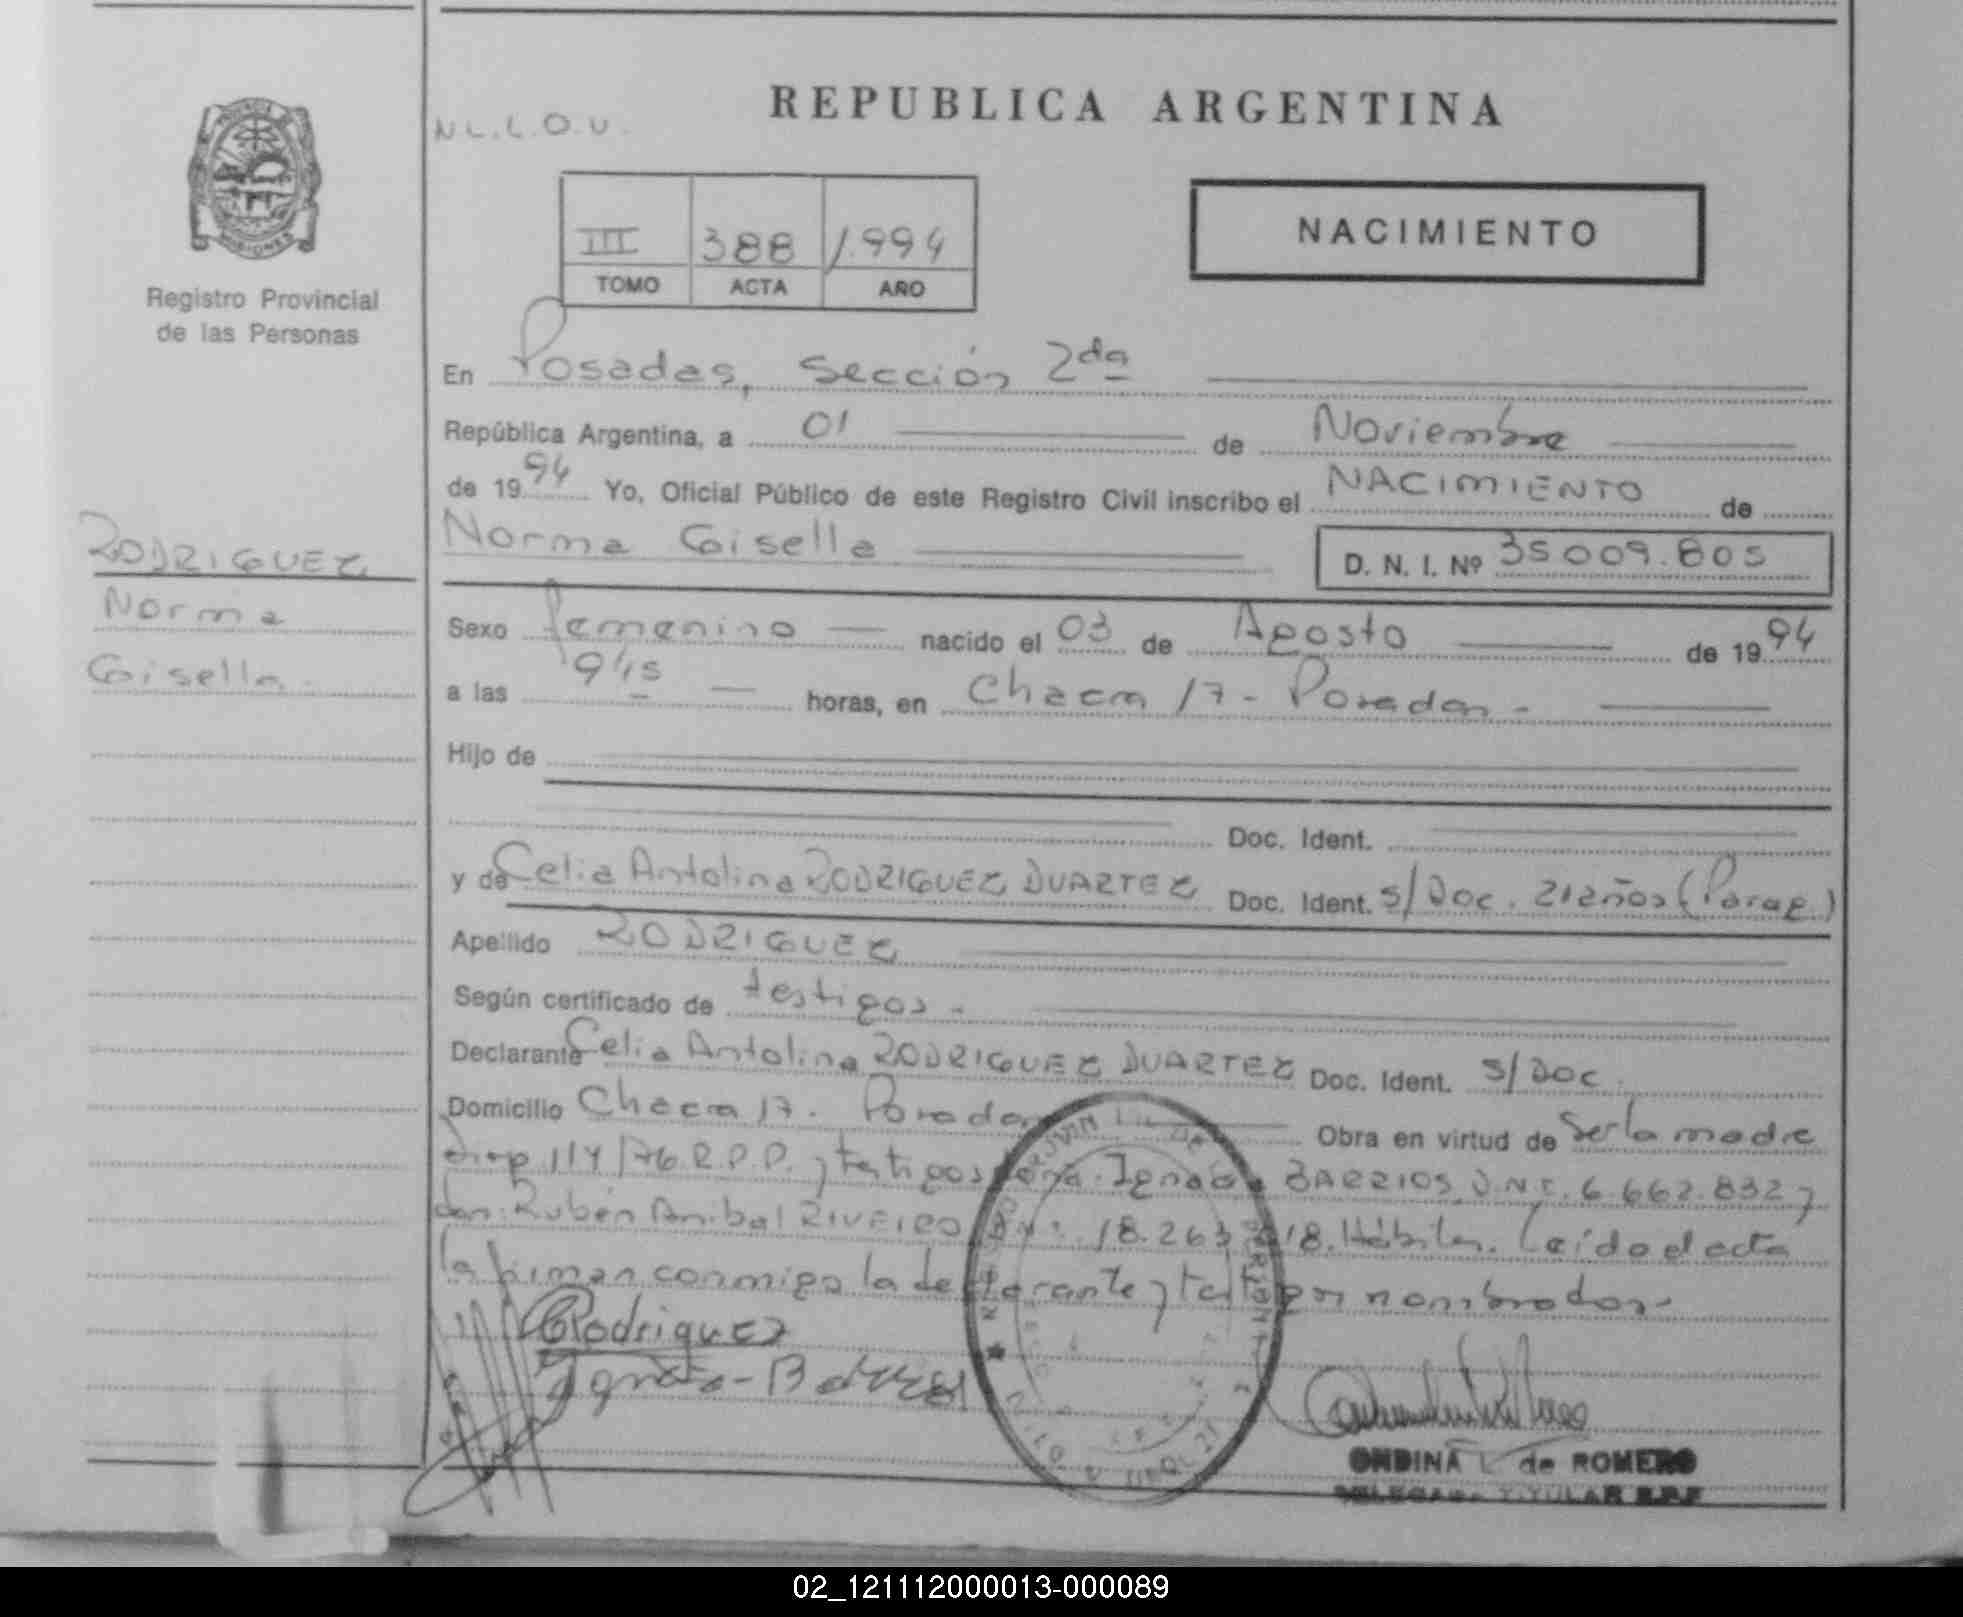 REPUBLICA ARGENTINA
PROVINCIA
MISIONES
Registro Provincial
de las Personas
N L. L. O. U.
III 388 1.994
TOMO ACTA AÑO
NACIMIENTO
En Posadas, Sección 2da
República Argentina, a 01 de Noviembre
de 1994 Yo, Oficial Público de este Registro Civil inscribo el NACIMIENTO de
Norma Gisella D. N. I. Nº 35009.805
RODRIGUEZ
Norma
Gisella.
Sexo femenino nacido el 03 de Agosto de 1994
a las 9 horas, en Chacra 17 - Posadas -
Hijo de
Doc. Ident.
y de Celia Antolina RODRIGUEZ DUARTEZ Doc. Ident. s/Doc. 21 años (Parag.)
Apellido RODRIGUEZ
Según certificado de testigos -
Declarante Celia Antolina RODRIGUEZ DUARTEZ Doc. Ident. s/Doc.
Domicilio Chacra 17. Posadas Obra en virtud de ser la madre
Disp 114/76 R.P.P. y testigos Ignacia BARRIOS D.N.I. 6.662.832 y
don: Rubén Anibal RIVEIRO 18.263 18. Hábiles. Leído el acta
la firman conmigo la declarante y testigos nombrados -
CRodriguez
ONDINA L. de ROMERO
DELEGADA TITULAR R.P.P
02_121112000013-000089